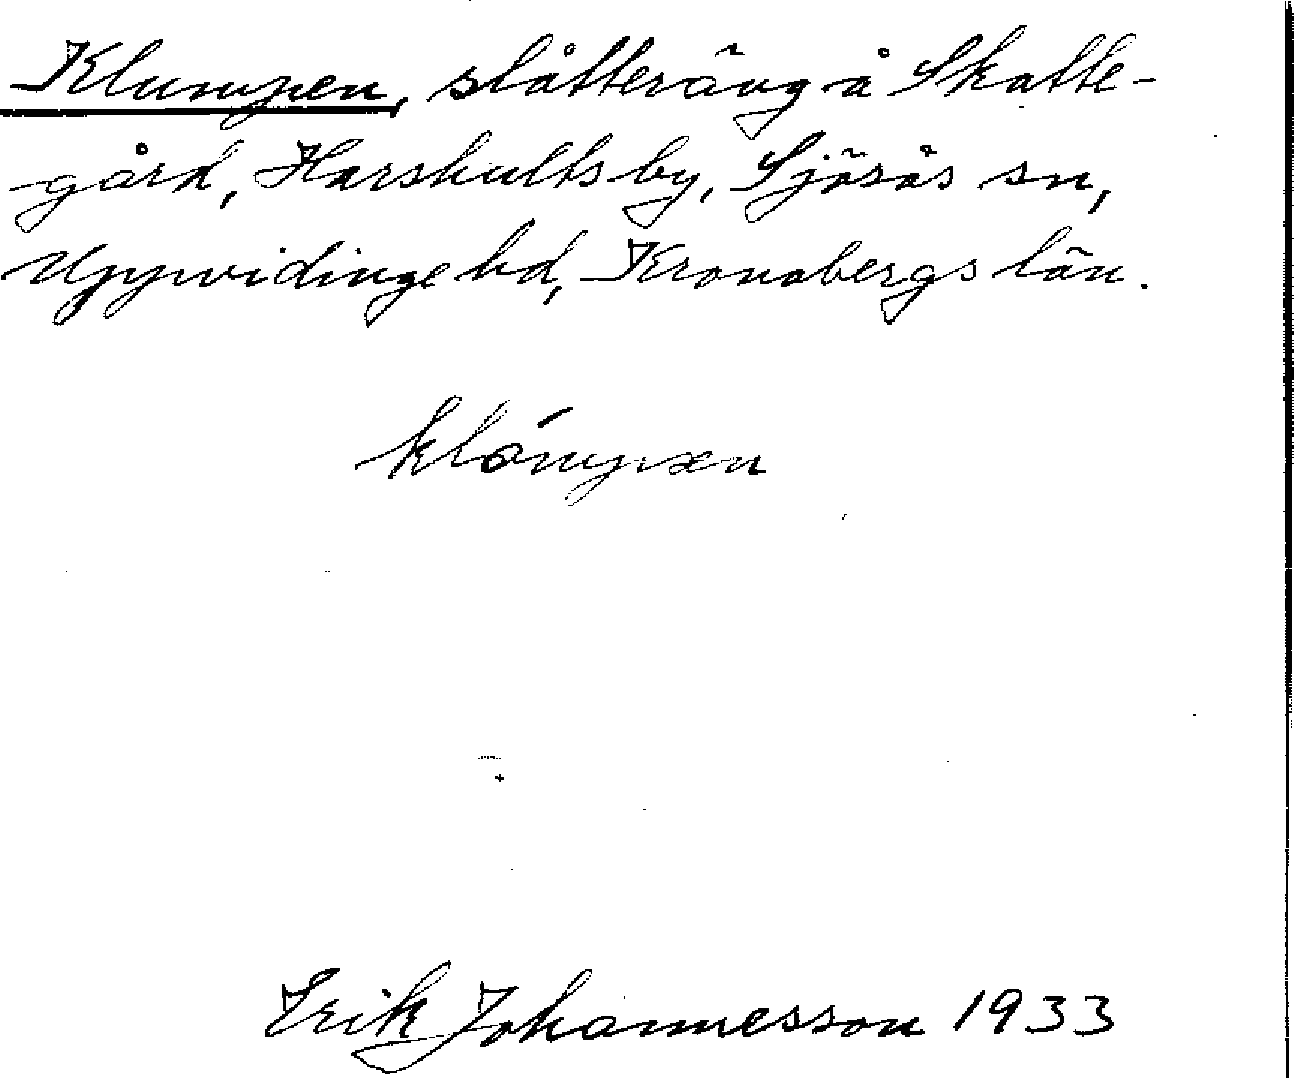 Klumpen, slåtteräng å Skatte-
gård, Harshults by, Sjösås sn,
Uppvidinge hd, Kronobergs län.
klómpæn
Erik Johannesson 1933